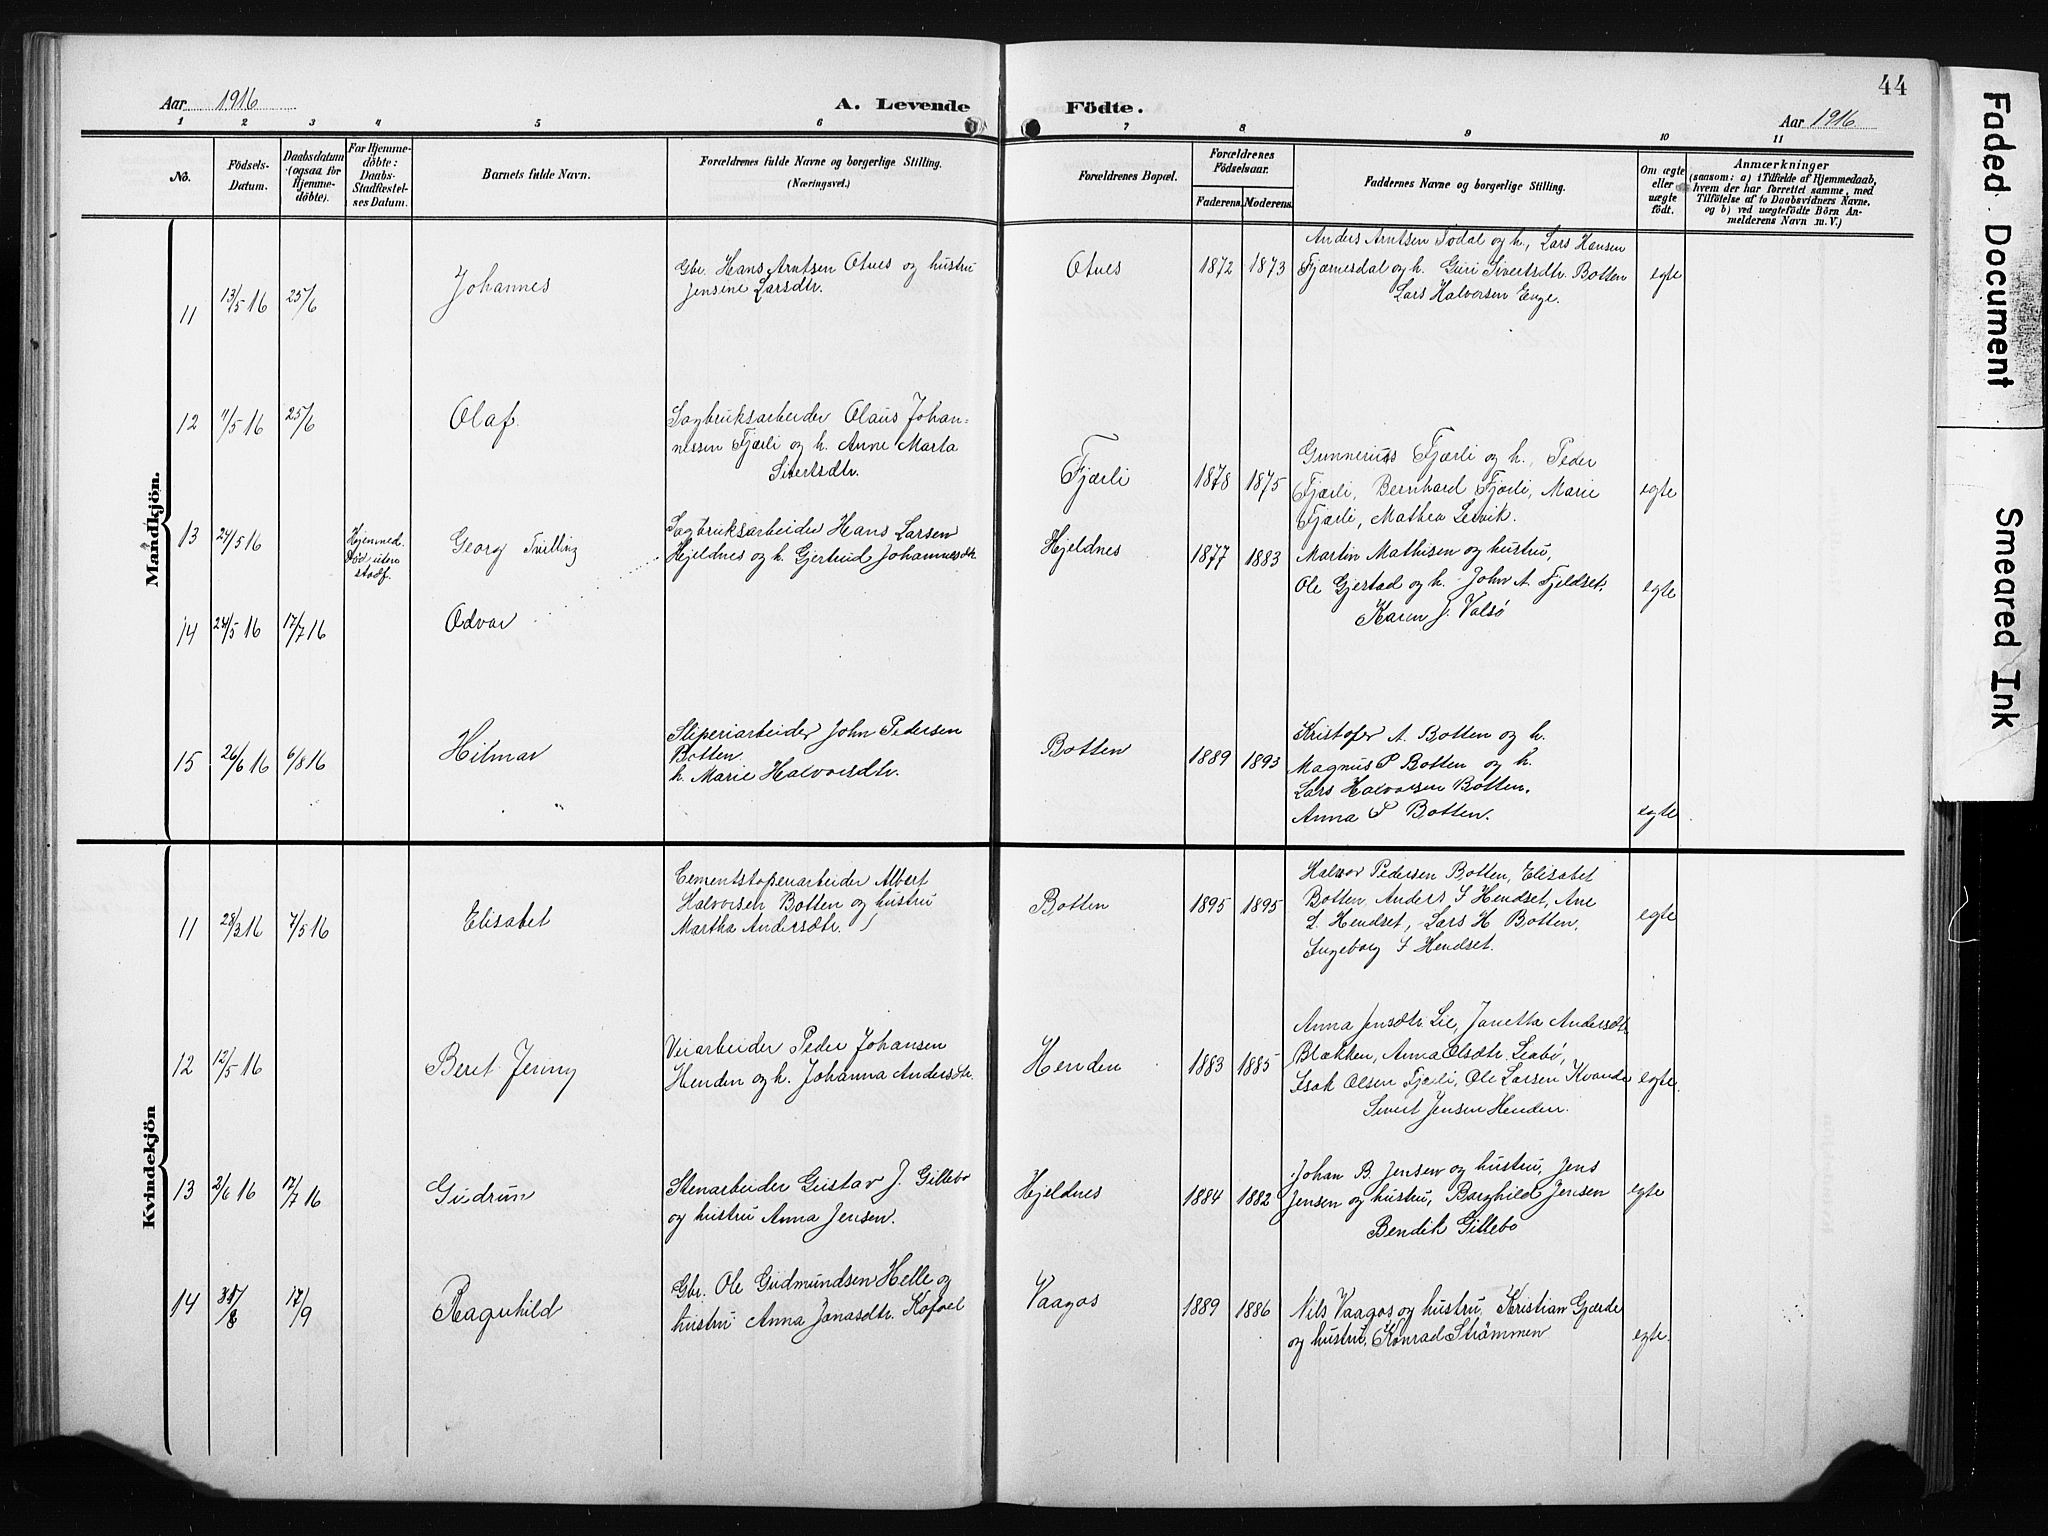 44
Aar 1916
A. Levende
Fødte.
Aar 1916
1 2 3 4 5 6 7 8 9 10 11
No.
Fødsels-
Datum.
Daabsdatum
(ogsaa for
Hjemme-
døbte).
For Hjemme-
døbte:
Daabs-
Stadfæstel-
ses Datum.
Barnets fulde Navn.
Forældrenes fulde Navne og borgerlige Stilling.
(Næringsvei.)
Forældrenes Bopæl.
Forældrenes
Fødselsaar.
Faderens. Moderens.
Faddernes Navne og borgerlige Stilling.
Om ægte
eller
uægte
født.
Anmærkninger
(saasom: a) i Tilfælde af Hjemmedaab,
hvem der har forrettet samme, med
Tilføielse af to Daabsvidners Navne,
og b) ved uægtefødte Børn An-
melderens Navn m. V.)
Mandkjön.
11 13/5 16 25/6 Johannes
Gbr. Hans Arntsen Otnes og hustru
Jensine Larsdtr.
Otnes 1872 1873
Anders Arntsen Södal og h., Lars Hansen
Fjærnesdal og h. Guri Sivertsdtr. Botten
Lars Halvorsen Enge.
egte
12 11/5 16 25/6 Olaf.
Sagbruksarbeider Olaus Johan-
nessen Fjærli og h. Anne Marta
Sivertsdtr.
Fjærli 1878 1875
Gunnerius Fjærli og h., Peder
Fjærli, Bernhard Fjærli, Marie
Fjærli, Mathea Lervik.
egte
13 24/5 16
Hjemmed.
död uten
stadf.
Georg Tvilling
Sagbruksarbeider Hans Larsen
Hjeldnes og h. Gjertrud Johannesdtr.
Hjeldnes 1877 1883
Martin Mathisen og hustru,
Ole Gjerstad og h. John A Fjeldset,
Karen J. Valsø
egte
14 24/5 16 17/7 16 Odvar
15 26/6 16 6/8 16 Hilmar
Sliperiarbeider John Pedersen
Botten.
h. Marie Halvorsdtr.
Botten 1889 1893
Kristofer A. Botten og h.
Magnus P Botten og h.
Lars Halvorsen Botten.
Anna P Botten.
egte
Kvindekjön
11 28/3 16 7/5 16 Elisabet
Cementstøperiarbeider Albert
Halvorsen Botten og hustru
Martha Andersdtr.
Botten 1895 1895
Halvor Pedersen Botten, Elisabet
Botten, Anders S Hendset, Ane
L. Hendset, Lars H Botten,
Ingeborg S Hendset.
egte
12 12/5 16 Beret Jenny
Veiarbeider Peder Johansen
Henden og h. Johanna Andersdtr.
Henden 1883 1885
Anna Jensdtr. Lie, Janetta Andersdtr.
Blækken, Anna Olsdtr. Leabö,
Isak Olsen Fjærli, Ole Larsen Kvande
Sivert Jensen Henden.
egte.
13 2/6 16 17/7 16 Gudrun
Stenarbeider Gustav J. Gillebo
og hustru Anna Jensen.
Hjeldnes 1884 1882
Johan B. Jensen og hustru, Jens
Jensen og hustru, Borghild Jensen
Bendik Gillebo
egte
14 17/9 Ragnhild
Gbr. Ole Gudmundsen Helle og
hustru Anna Jonasdtr. Kofoel
Vaagos 1889 1886
Nils Vaagos og hustru, Kristian Gjærde
og hustru, Konrad Strømmen
egte.
Faded Document
Smeared Ink